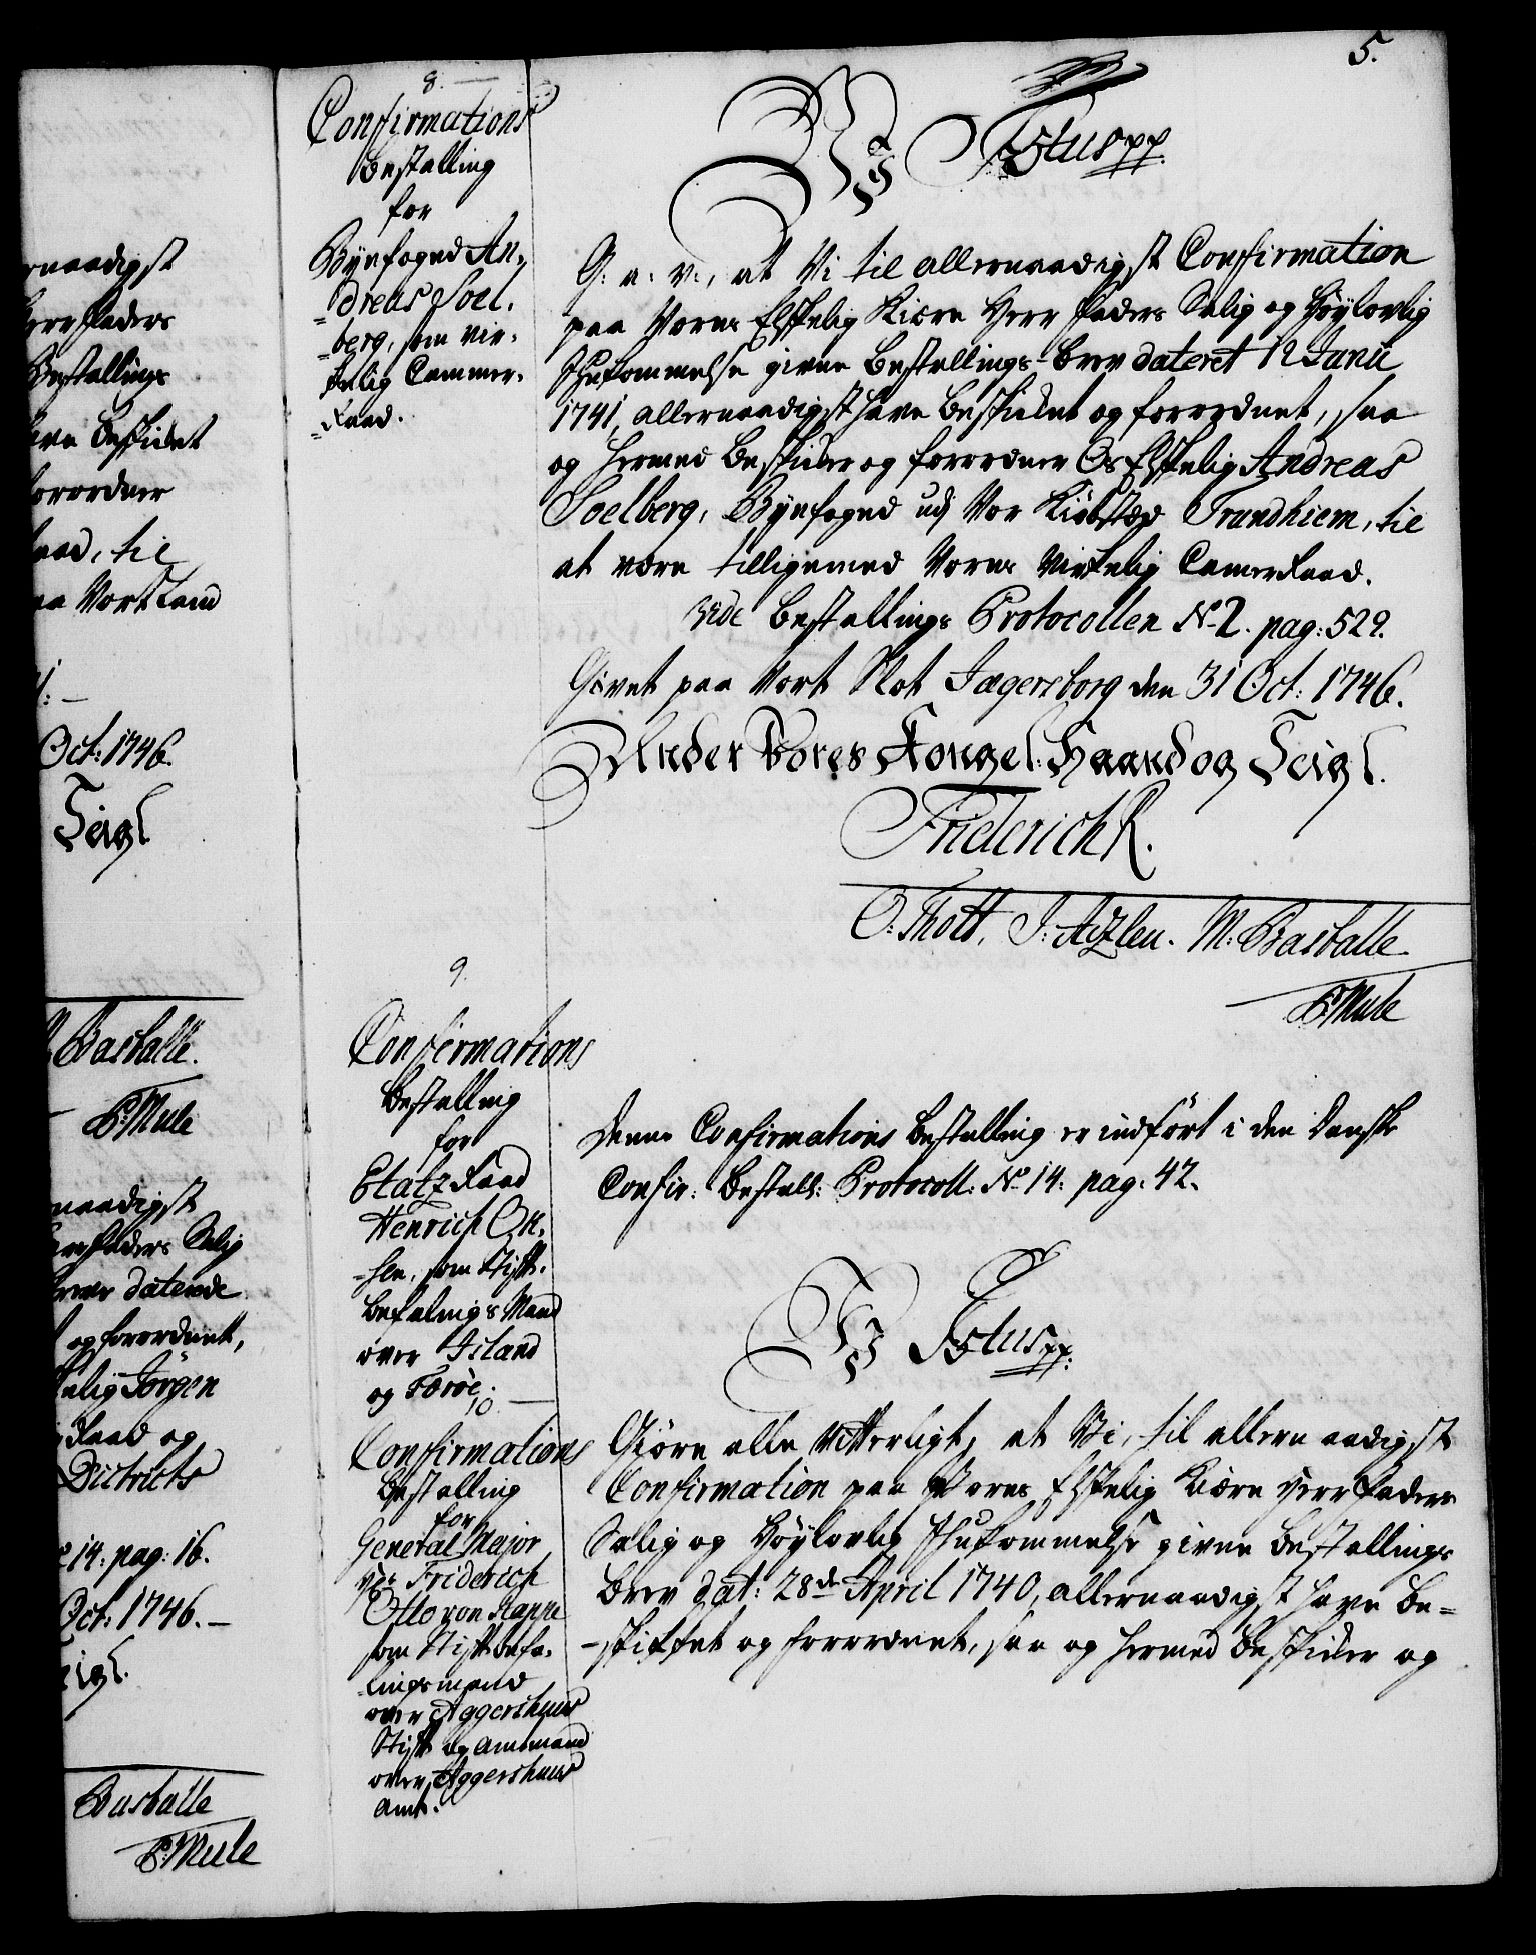 5.
8.
Confirmations
Bestalling
for
Byefoged An-
dreas Soel-
berg, som vir-
kelig Cammer-
Raad.
Wi F5tus pp.
G: a: v:, at Vi til allernaadigst Confirmation
paa Vores Elskelig Kiære Herr Faders Salig og Høylovlig
Ihukommelse givne Bestallings-Brev dateret 12 Janii
1741, allernaadigst have beskicket og forordnet, saa
og hermed beskicker og forordner Os Elskelig Andreas
Soelberg, Byefoged udj Vor Kiøbstæd Trundhiem, til
at være tilligemed Vores Virkelig CamerRaad.
vide Bestallings Protocollen No 2. pag: 529.
Givet paa Vort Slot Jægersborg den 31 Oct: 1746.
Under Vores Kongel: Haand og Seigl.
Friderich R.
O: Thott. J: Aizlen. M: Basballe
P: Mule
9.
Confirmations
Bestalling
for
EtatzRaad
Henrich Ok-
-sen, som Stift-
befalings Mand
over Island
og Færøe.
Denne Confirmations Bestalling er indført i den Danske
Confir: Bestall: Protocoll: No 14: pag: 42.
10.
Confirmations
Bestalling
for
General Major
Friderich
Otto von Rappe
som Stiftbefa-
-lingsmand
over Aggershuus
Stift og Amtmand
over Aggershuus
Amt.
Wi F5tus pp:
Giøre alle vitterligt, at Vi, til allernaadigst
Confirmation paa Vores Elskelig Kiære Herr Faders
Salig og Høylovlig Ihukommelse givne Bestallings
Brev dat: 28de April 1740, allernaadigst have be-
-skikket og forordnet, saa og hermed beskicker og
rnaadigst
Herr Faders
Bestallings
have beskicket
forordner
Raad, til
paa Vort Land
Oct: 1746.
Seigl
M: Basballe.
P: Mule
naadigst
Herr Faders Salig
Brev daterede
og forordnet,
Elskelig Jørgen
Raad og
Districts
14: pag: 16.
Oct: 1746.-
Seigl.
Basballe
P: Mule